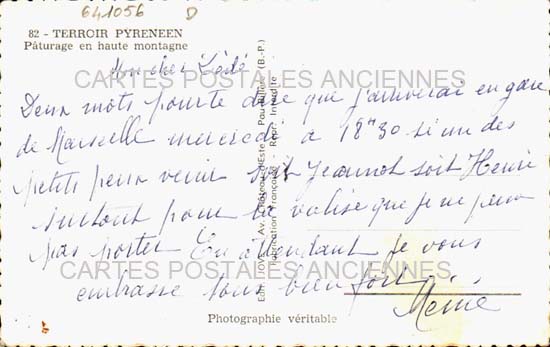 641056 D
82 - TERROIR PYRENEEN
Pâturage en haute montagne
Mon cher Dédé
CARTES POSTALES ANCIENNES
Deux mots pour te dire que j'arriverai en gare
de Marseille mercredi a 18H30 si un des
petits peux venir soit Jeannot soit Henri
surtout pour la valise que je ne peux
pas porter En attendant je vous
CARTES POSTALES ANCIENNES
embrasse tous bien fort
Photographie véritable